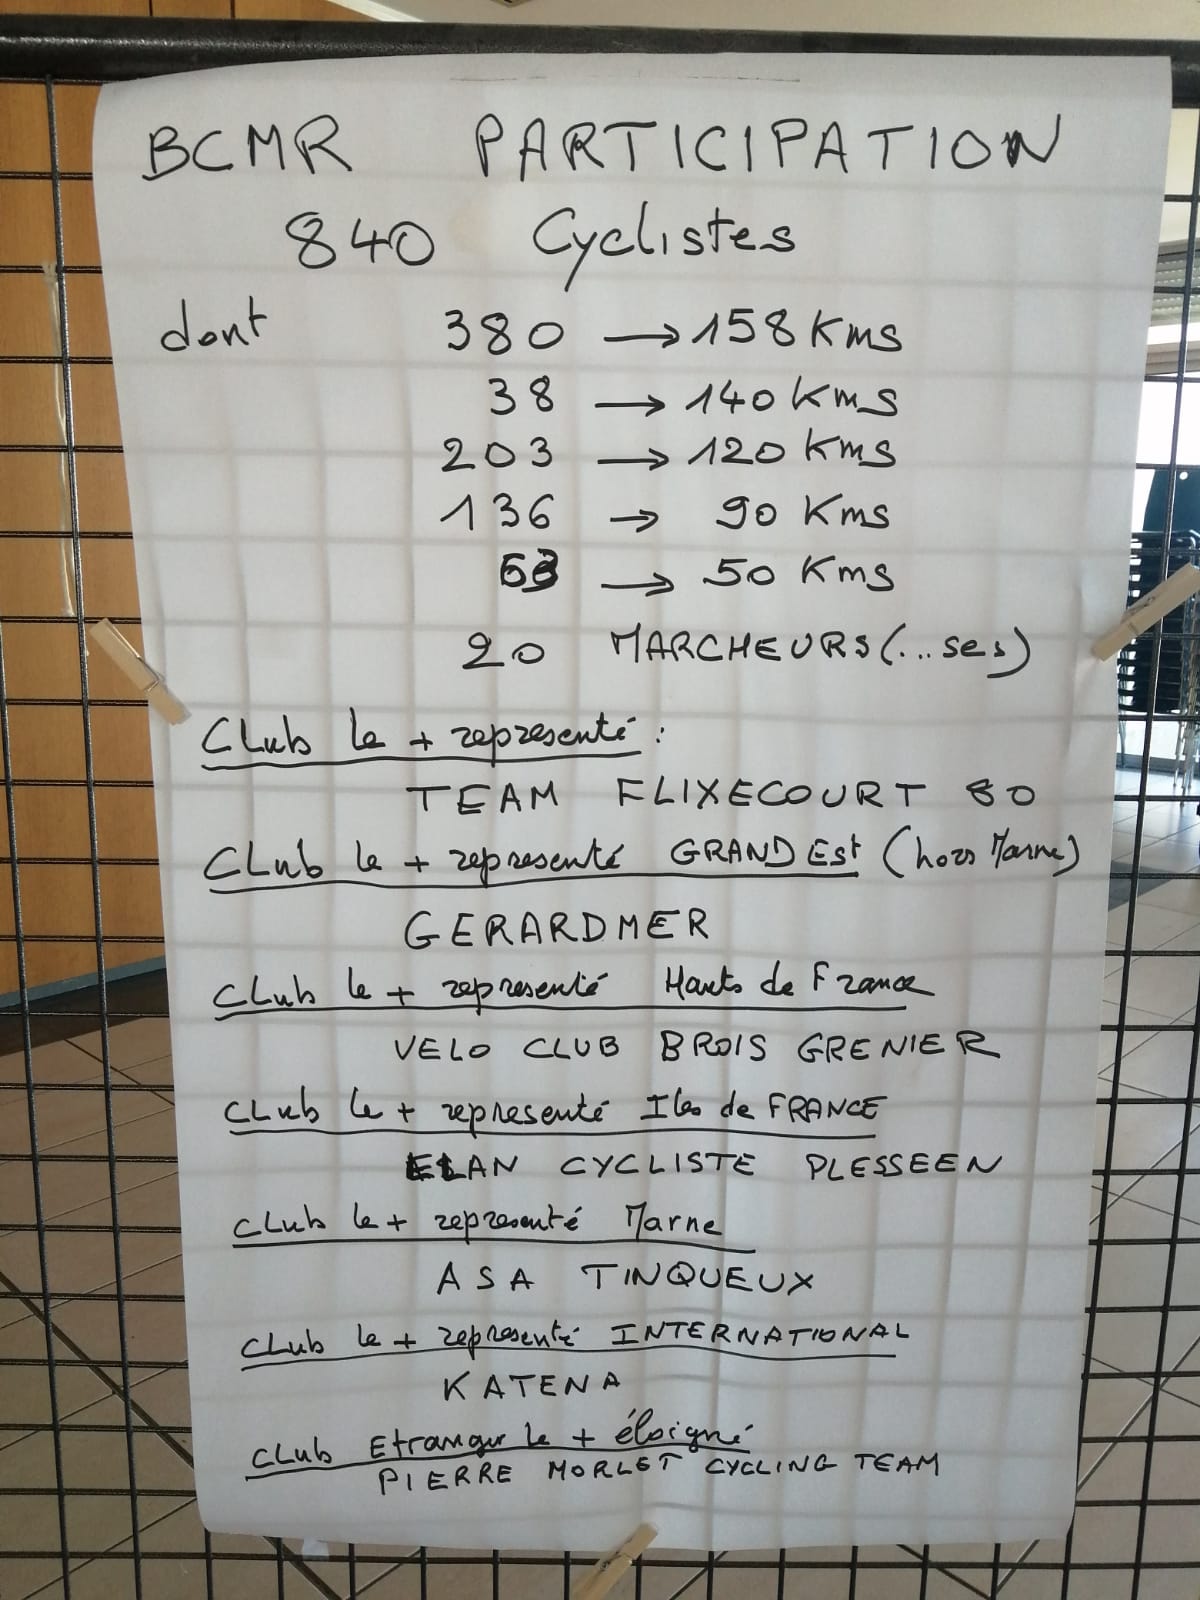 BCMR PARTICIPATION
840 Cyclistes
dont 380 → 158 Kms
38 → 140 Kms
203 → 120 Kms
136 → 90 Kms
63 → 50 Kms
20 MARCHEURS (...ses)
Club le + représenté :
TEAM FLIXECOURT 80
Club le + représenté GRAND Est (hors Marne)
GERARDMER
Club le + représenté Hauts de France
VELO CLUB BROIS GRENIER
Club le + représenté Iles de FRANCE
ELAN CYCLISTE PLESSEEN
Club le + représenté Marne
ASA TINQUEUX
Club le + représenté INTERNATIONAL
KATENA
Club Etranger le + éloigné
PIERRE MORLET CYCLING TEAM